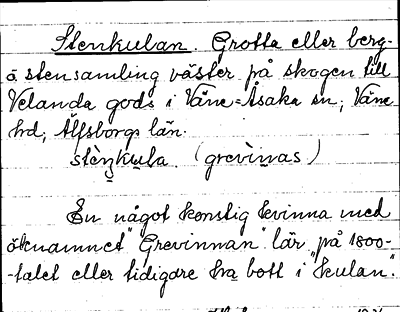 Stenkulan. Grotta eller berg-
o stensamling väster på skogen till
Velanda gods i Väne=Åsaka sn, Väne
hd, Älfsborgs län.
(grevinnas)
En något konstig kvinna med
öknamnet "Grevinnan" lär på 1800-
-talet eller tidigare ha bott i "kulan".